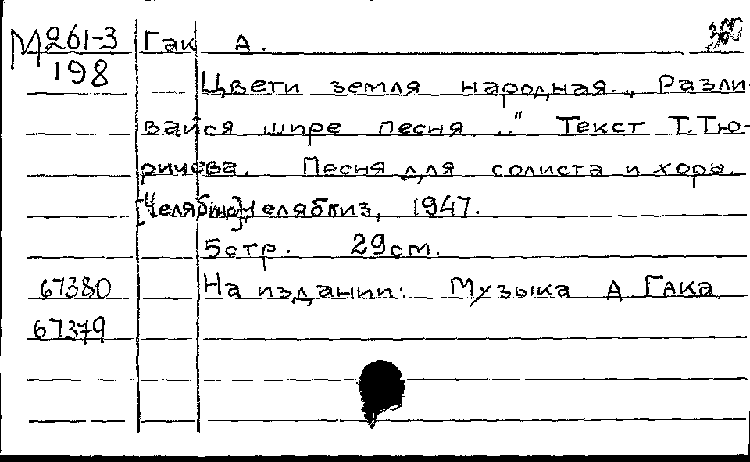 М 261-3 Гак А.
198 Цвети земля народная. „Разли-
вайся шире песня..." Текст Т.Тю-
ричева. Песня для солиста и хора.
[Челябинск], Челябгиз, 1947.
5стр. 29см.
67380 На издании: Музыка А Гака
67379